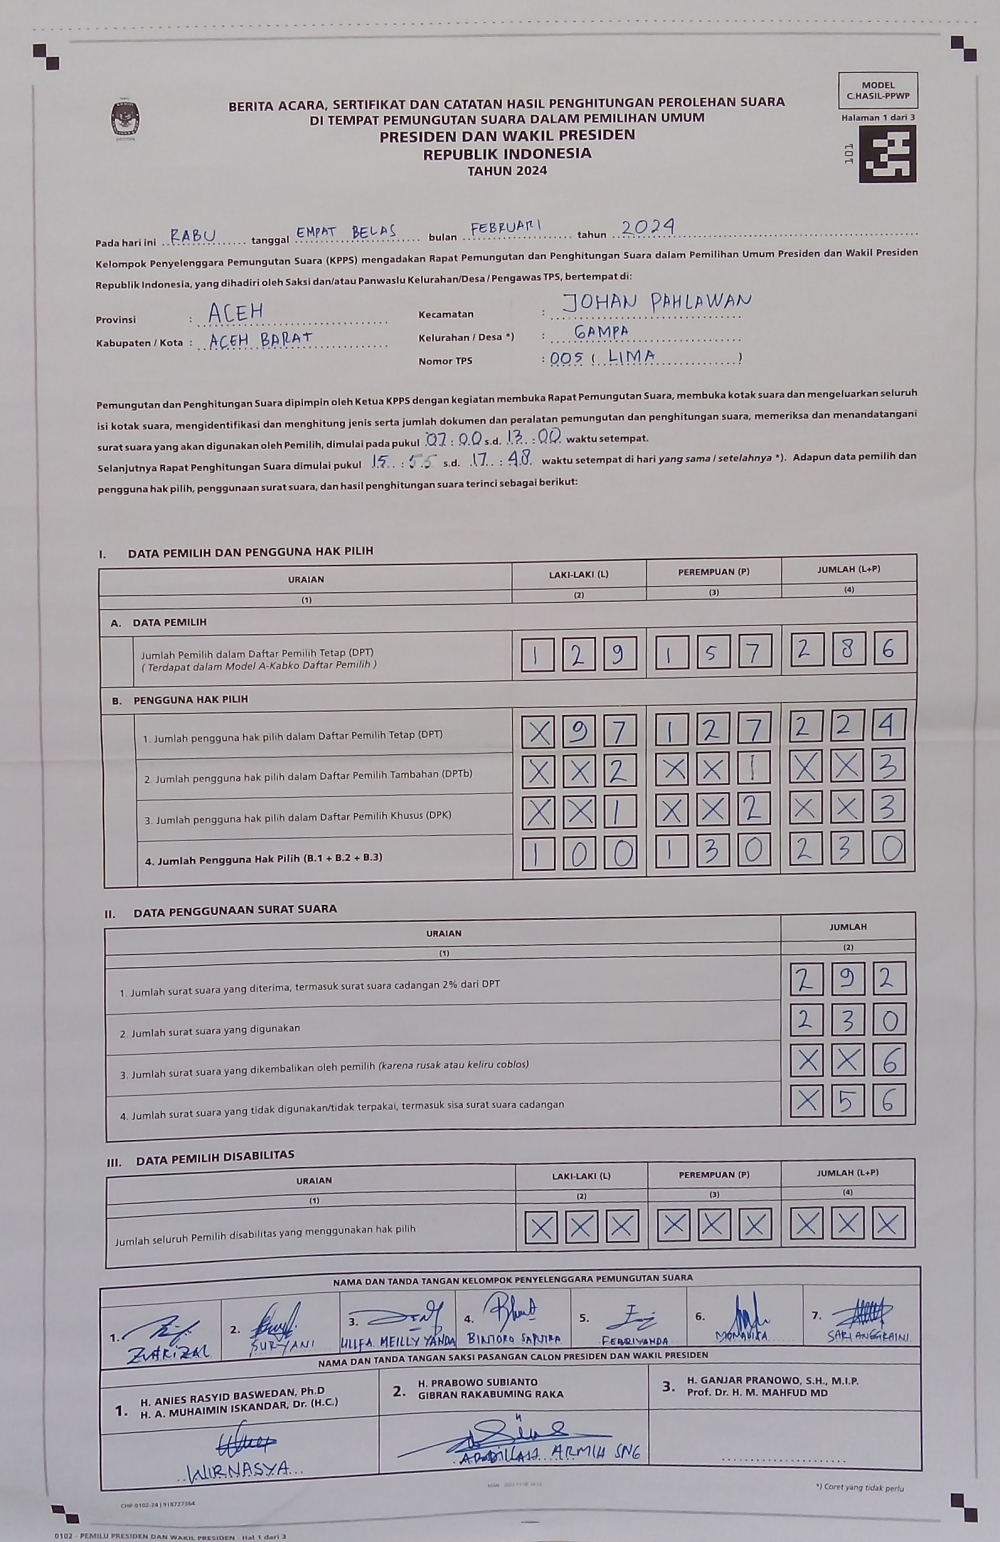 MODEL
C.HASIL-PPWP
Halaman 1 dari 3
101
BERITA ACARA, SERTIFIKAT DAN CATATAN HASIL PENGHITUNGAN PEROLEHAN SUARA
DI TEMPAT PEMUNGUTAN SUARA DALAM PEMILIHAN UMUM
PRESIDEN DAN WAKIL PRESIDEN
REPUBLIK INDONESIA
TAHUN 2024
Pada hari ini RABU tanggal EMPAT BELAS bulan FEBRUARI tahun 2024
Kelompok Penyelenggara Pemungutan Suara (KPPS) mengadakan Rapat Pemungutan dan Penghitungan Suara dalam Pemilihan Umum Presiden dan Wakil Presiden
Republik Indonesia, yang dihadiri oleh Saksi dan/atau Panwaslu Kelurahan/Desa / Pengawas TPS, bertempat di:
Provinsi : ACEH Kecamatan : JOHAN PAHLAWAN
Kabupaten / Kota : ACEH BARAT Kelurahan / Desa *) : GAMPA
Nomor TPS : 005 ( LIMA )
Pemungutan dan Penghitungan Suara dipimpin oleh Ketua KPPS dengan kegiatan membuka Rapat Pemungutan Suara, membuka kotak suara dan mengeluarkan seluruh
isi kotak suara, mengidentifikasi dan menghitung jenis serta jumlah dokumen dan peralatan pemungutan dan penghitungan suara, memeriksa dan menandatangani
surat suara yang akan digunakan oleh Pemilih, dimulai pada pukul 07 : 00 s.d. 13 : 00 waktu setempat.
Selanjutnya Rapat Penghitungan Suara dimulai pukul 15 : 55 s.d. 17 : 48 waktu setempat di hari yang sama / setelahnya *). Adapun data pemilih dan
pengguna hak pilih, penggunaan surat suara, dan hasil penghitungan suara terinci sebagai berikut:
I. DATA PEMILIH DAN PENGGUNA HAK PILIH
URAIAN LAKI-LAKI (L) PEREMPUAN (P) JUMLAH (L+P)
(1) (2) (3) (4)
A. DATA PEMILIH
Jumlah Pemilih dalam Daftar Pemilih Tetap (DPT) 1 2 9 1 5 7 2 8 6
( Terdapat dalam Model A-Kabko Daftar Pemilih )
B. PENGGUNA HAK PILIH
1. Jumlah pengguna hak pilih dalam Daftar Pemilih Tetap (DPT) X 9 7 1 2 7 2 2 4
2. Jumlah pengguna hak pilih dalam Daftar Pemilih Tambahan (DPTb) X X 2 X X 1 X X 3
3. Jumlah pengguna hak pilih dalam Daftar Pemilih Khusus (DPK) X X 1 X X 2 X X 3
4. Jumlah Pengguna Hak Pilih (B.1 + B.2 + B.3) 1 0 0 1 3 0 2 3 0
II. DATA PENGGUNAAN SURAT SUARA
URAIAN JUMLAH
(1) (2)
1. Jumlah surat suara yang diterima, termasuk surat suara cadangan 2% dari DPT 2 9 2
2. Jumlah surat suara yang digunakan 2 3 0
3. Jumlah surat suara yang dikembalikan oleh pemilih (karena rusak atau keliru coblos) X X 6
4. Jumlah surat suara yang tidak digunakan/tidak terpakai, termasuk sisa surat suara cadangan X 5 6
III. DATA PEMILIH DISABILITAS
URAIAN LAKI-LAKI (L) PEREMPUAN (P) JUMLAH (L+P)
(1) (2) (3) (4)
Jumlah seluruh Pemilih disabilitas yang menggunakan hak pilih X X X X X X X X X
NAMA DAN TANDA TANGAN KELOMPOK PENYELENGGARA PEMUNGUTAN SUARA
1. 2. 3. 4. 5. 6. 7.
ZUARIZAL SURYANI ULLFA MEILLY YANDA BINTORO SAPUTRA FEBRIYANDA MONAVIKA SARI ANGGRAINI
NAMA DAN TANDA TANGAN SAKSI PASANGAN CALON PRESIDEN DAN WAKIL PRESIDEN
1. H. ANIES RASYID BASWEDAN, Ph.D
H. A. MUHAIMIN ISKANDAR, Dr. (H.C.)
2. H. PRABOWO SUBIANTO
GIBRAN RAKABUMING RAKA
3. H. GANJAR PRANOWO, S.H., M.I.P.
Prof. Dr. H. M. MAHFUD MD
WIRNASYA
ARMIA SNG
*) Coret yang tidak perlu
CHP-0102-24 | 918727364
0102 - PEMILU PRESIDEN DAN WAKIL PRESIDEN - Hal 1 dari 3